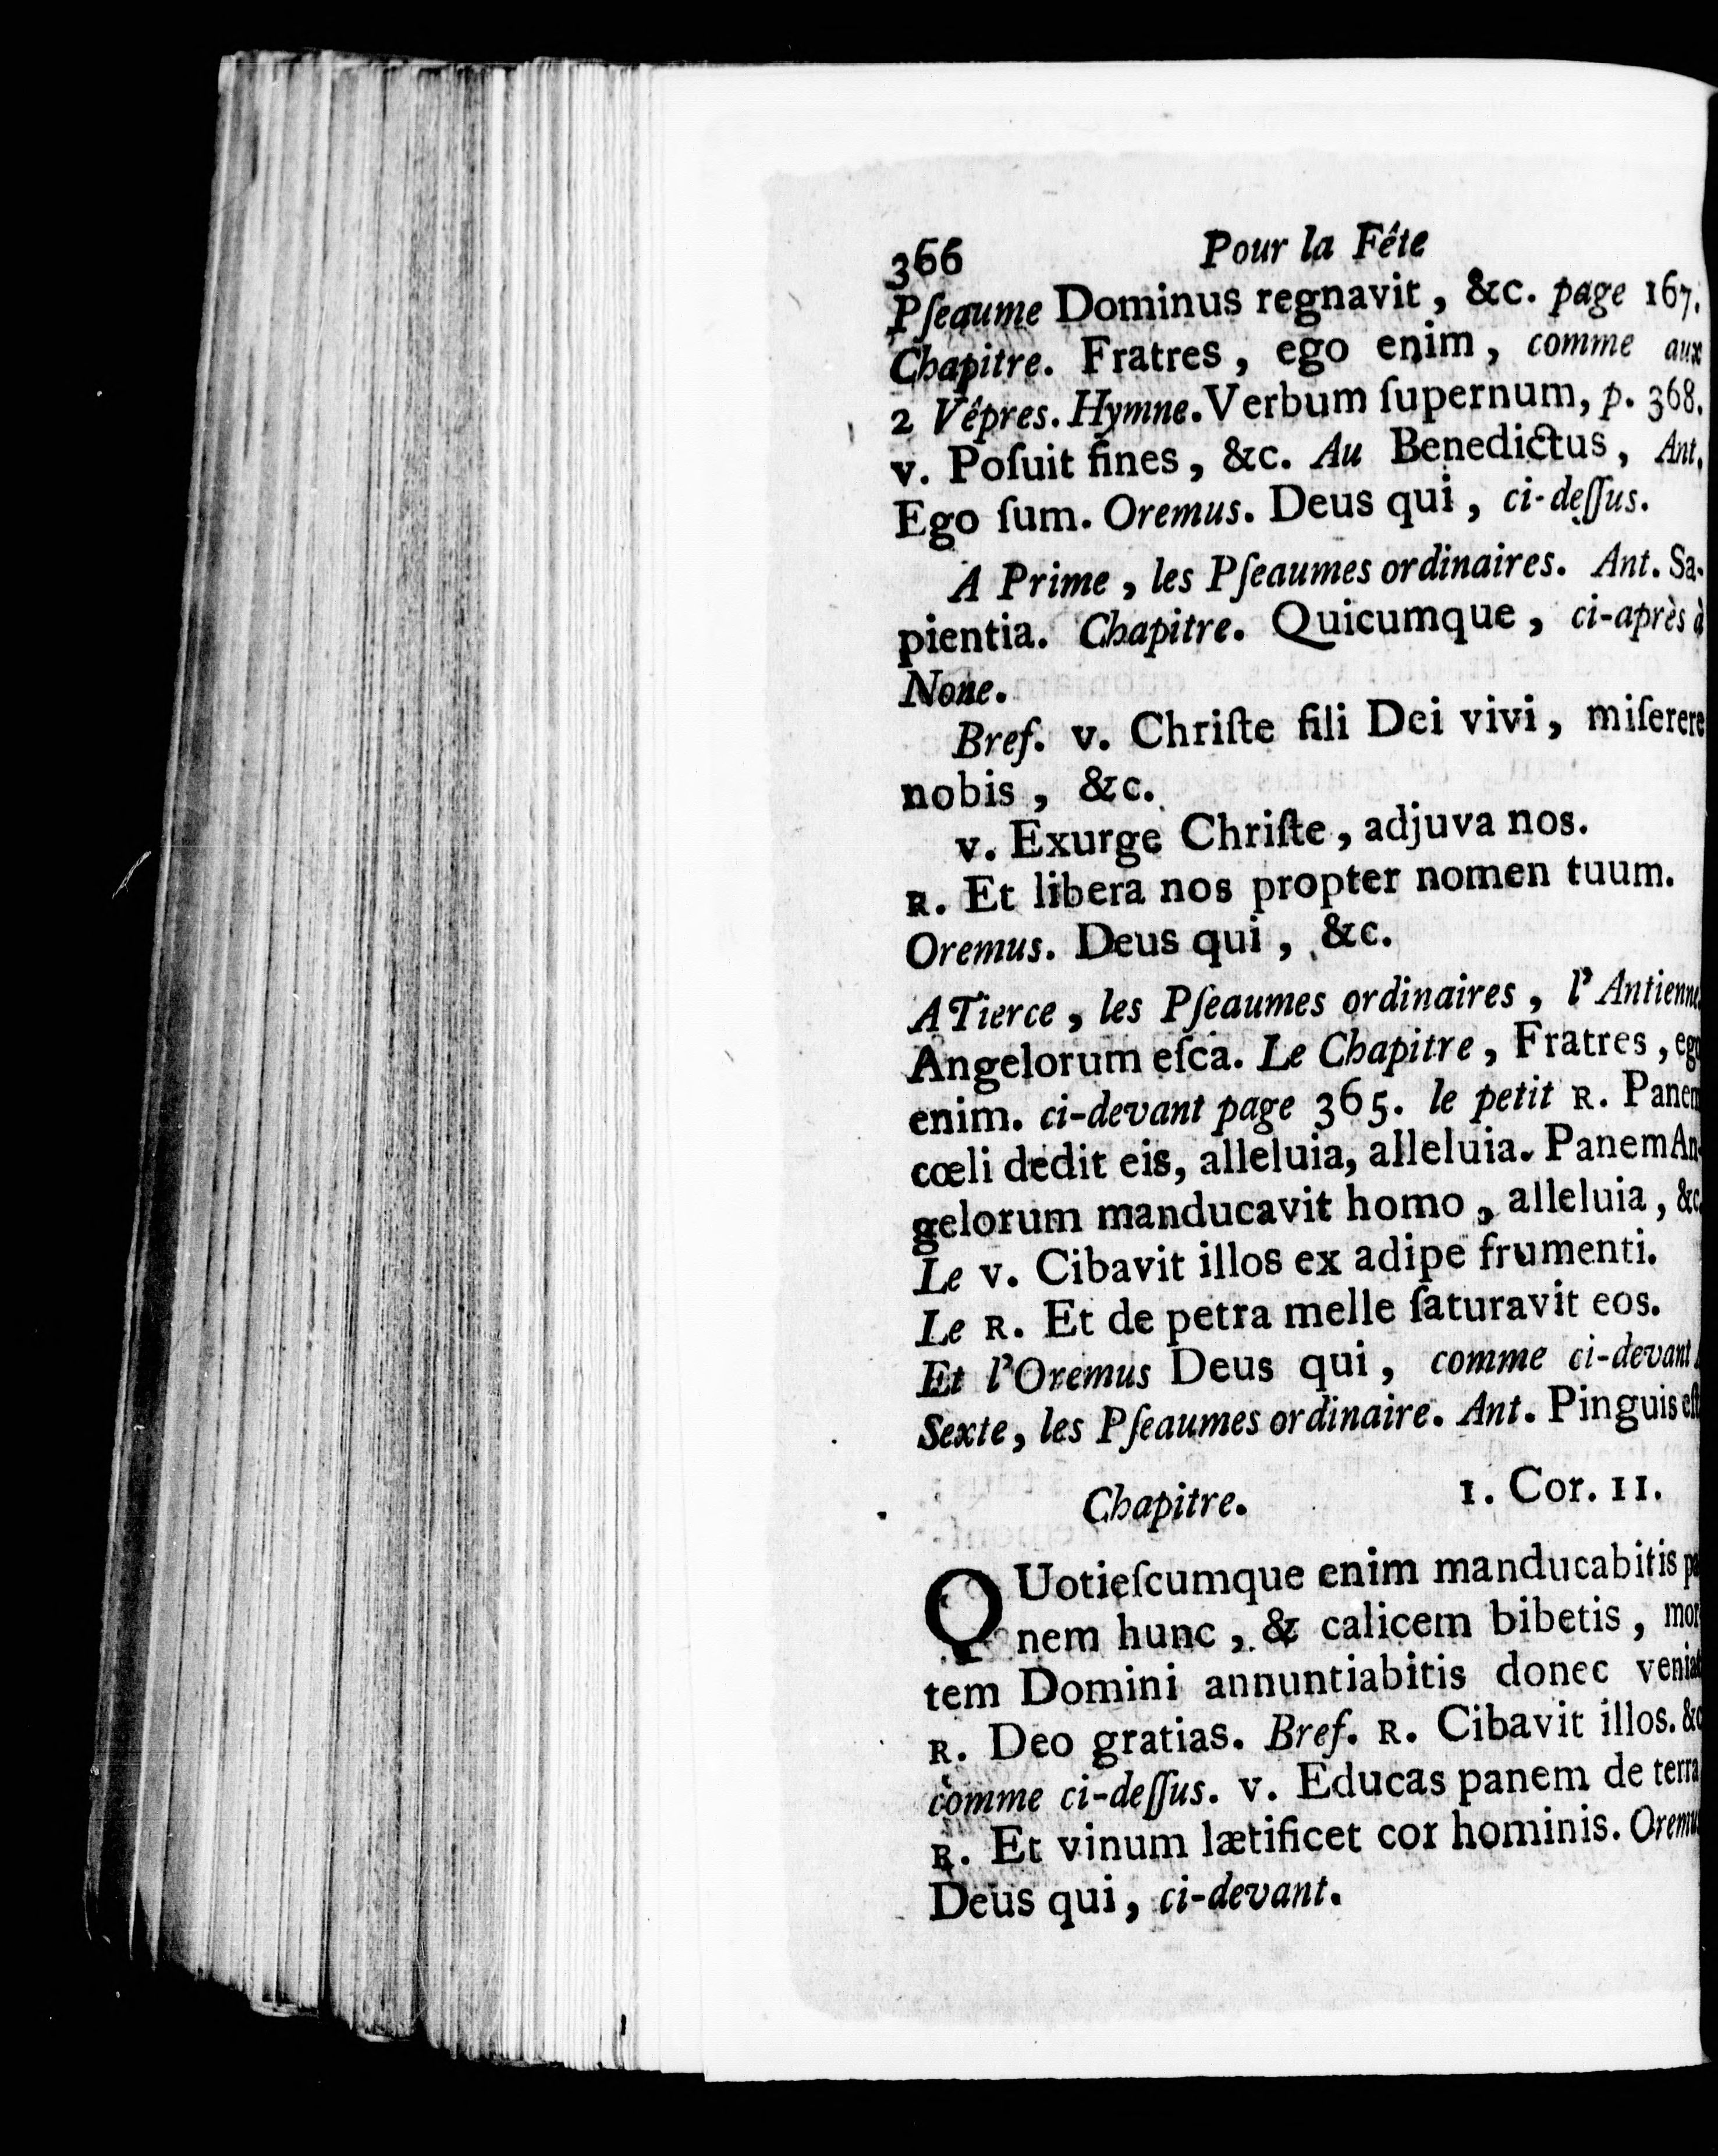 366 Pour la Fête
Pſeaume Dominus regnavit, &c. page 167.
Chapitre. Fratres, ego enim, comme aux
2 Vêpres. Hymne. Verbum ſupernum, p. 368.
v. Poſuit fines, &c. Au Benedictus, Ant.
Ego ſum. Oremus. Deus qui, ci-deſſus.
A Prime, les Pſeaumes ordinaires. Ant. Sa-
pientia. Chapitre. Quicumque, ci-après à
None.
Bref. v. Chriſte fili Dei vivi, miſerere
nobis, &c.
v. Exurge Chriſte, adjuva nos.
R. Et libera nos propter nomen tuum.
Oremus. Deus qui, &c.
A Tierce, les Pſeaumes ordinaires, l'Antienne
Angelorum eſca. Le Chapitre, Fratres, ego
enim. ci-devant page 365. le petit R. Panem
cœli dedit eis, alleluia, alleluia. Panem An-
gelorum manducavit homo, alleluia, &c.
Le v. Cibavit illos ex adipe frumenti.
Le R. Et de petra melle ſaturavit eos.
Et l'Oremus Deus qui, comme ci-devant.
Sexte, les Pſeaumes ordinaire. Ant. Pinguis eſt
Chapitre. 1. Cor. 11.
QUotieſcumque enim manducabitis pa
nem hunc, & calicem bibetis, mor
tem Domini annuntiabitis donec veniat
R. Deo gratias. Bref. R. Cibavit illos. &c
comme ci-deſſus. v. Educas panem de terra
R. Et vinum lætificet cor hominis. Oremus
Deus qui, ci-devant.